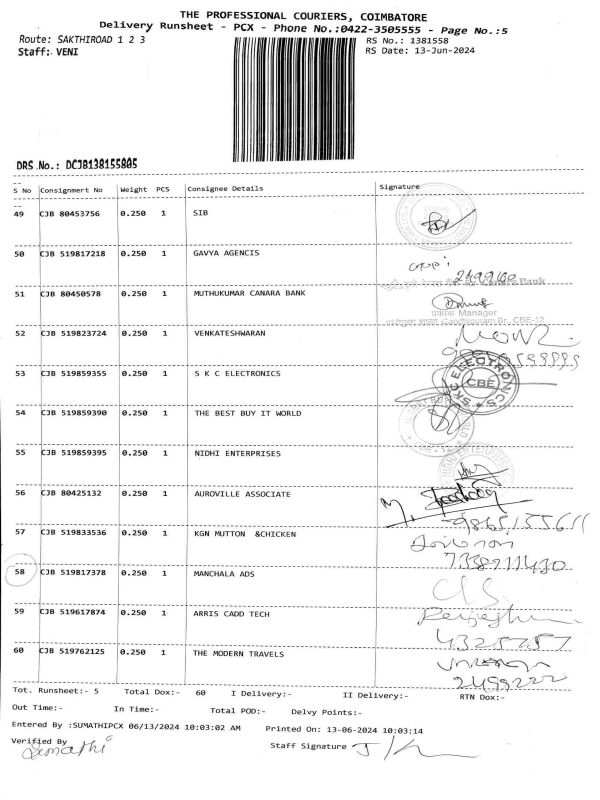 THE PROFESSIONAL COURIERS, COIMBATORE
Delivery Runsheet - PCX - Phone No.:0422-3505555 - Page No.:5
Route: SAKTHIROAD 1 2 3
RS No.: 1381558
Staff: VENI
RS Date: 13-Jun-2024
DRS No.: DCJB138155805
S No Consignment No Weight PCS Consignee Details Signature
49 CJB 80453756 0.250 1 SIB
50 CJB 519817218 0.250 1 GAVYA AGENCIS
249960
Canara Bank
51 CJB 80450578 0.250 1 MUTHUKUMAR CANARA BANK
Manager
Gandhipuram Br., CBE-12
52 CJB 519823724 0.250 1 VENKATESHWARAN
53 CJB 519859355 0.250 1 S K C ELECTRONICS
SKC ELECTRONICS
CBE
54 CJB 519859390 0.250 1 THE BEST BUY IT WORLD
CBE - 12
55 CJB 519859395 0.250 1 NIDHI ENTERPRISES
56 CJB 80425132 0.250 1 AUROVILLE ASSOCIATE
57 CJB 519833536 0.250 1 KGN MUTTON &CHICKEN
58 CJB 519817378 0.250 1 MANCHALA ADS
59 CJB 519617874 0.250 1 ARRIS CADD TECH
4325757
60 CJB 519762125 0.250 1 THE MODERN TRAVELS
2499222
Tot. Runsheet:- 5 Total Dox:- 60 I Delivery:- II Delivery:- RTN Dox:-
Out Time:- In Time:- Total POD:- Delvy Points:-
Entered By :SUMATHIPCX 06/13/2024 10:03:02 AM Printed On: 13-06-2024 10:03:14
Verified By
Sumathi
Staff Signature